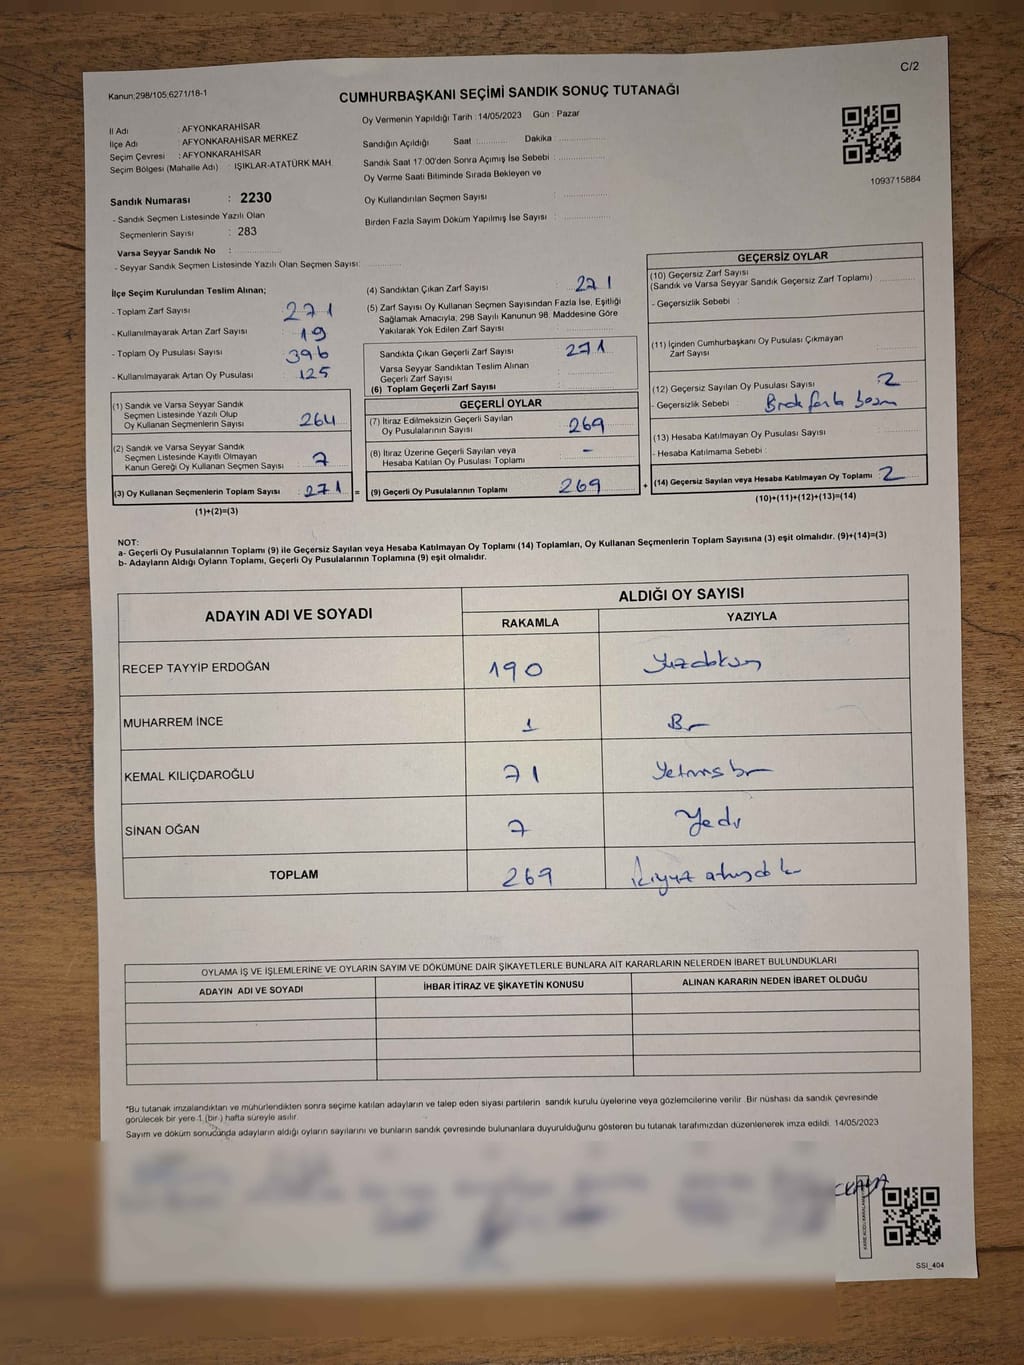 C/2
Kanun;298/105;6271/18-1
CUMHURBAŞKANI SEÇİMİ SANDIK SONUÇ TUTANAĞI
İl Adı : AFYONKARAHİSAR
İlçe Adı : AFYONKARAHİSAR MERKEZ
Seçim Çevresi : AFYONKARAHİSAR
Seçim Bölgesi (Mahalle Adı) : IŞIKLAR-ATATÜRK MAH.
Sandık Numarası : 2230
- Sandık Seçmen Listesinde Yazılı Olan
Seçmenlerin Sayısı : 283
Varsa Seyyar Sandık No :
- Seyyar Sandık Seçmen Listesinde Yazılı Olan Seçmen Sayısı:
Oy Vermenin Yapıldığı Tarih : 14/05/2023 Gün : Pazar
Sandığın Açıldığı Saat Dakika
Sandık Saat 17:00'den Sonra Açımış İse Sebebi :
Oy Verme Saati Bitiminde Sırada Bekleyen ve
Oy Kullandırılan Seçmen Sayısı :
Birden Fazla Sayım Döküm Yapılmış İse Sayısı :
1093715884
İlçe Seçim Kurulundan Teslim Alınan;
- Toplam Zarf Sayısı : 271
- Kullanılmayarak Artan Zarf Sayısı : 19
- Toplam Oy Pusulası Sayısı : 396
- Kullanılmayarak Artan Oy Pusulası : 125
(1) Sandık ve Varsa Seyyar Sandık
Seçmen Listesinde Yazılı Olup
Oy Kullanan Seçmenlerin Sayısı : 264
(2) Sandık ve Varsa Seyyar Sandık
Seçmen Listesinde Kayıtlı Olmayan
Kanun Gereği Oy Kullanan Seçmen Sayısı : 7
(3) Oy Kullanan Seçmenlerin Toplam Sayısı : 271 =
(1)+(2)=(3)
(4) Sandıktan Çıkan Zarf Sayısı : 271
(5) Zarf Sayısı Oy Kullanan Seçmen Sayısından Fazla İse, Eşitliği
Sağlamak Amacıyla; 298 Sayılı Kanunun 98. Maddesine Göre
Yakılarak Yok Edilen Zarf Sayısı :
Sandıkta Çıkan Geçerli Zarf Sayısı : 271
Varsa Seyyar Sandıktan Teslim Alınan
Geçerli Zarf Sayısı :
(6) Toplam Geçerli Zarf Sayısı :
GEÇERLİ OYLAR
(7) İtiraz Edilmeksizin Geçerli Sayılan
Oy Pusulalarının Sayısı : 269
(8) İtiraz Üzerine Geçerli Sayılan veya
Hesaba Katılan Oy Pusulası Toplamı : -
(9) Geçerli Oy Pusulalarının Toplamı : 269 +
GEÇERSİZ OYLAR
(10) Geçersiz Zarf Sayısı
(Sandık ve Varsa Seyyar Sandık Geçersiz Zarf Toplamı)
- Geçersizlik Sebebi :
(11) İçinden Cumhurbaşkanı Oy Pusulası Çıkmayan
Zarf Sayısı
(12) Geçersiz Sayılan Oy Pusulası Sayısı : 2
- Geçersizlik Sebebi :
(13) Hesaba Katılmayan Oy Pusulası Sayısı :
- Hesaba Katılmama Sebebi :
(14) Geçersiz Sayılan veya Hesaba Katılmayan Oy Toplamı : 2
(10)+(11)+(12)+(13)=(14)
NOT:
a- Geçerli Oy Pusulalarının Toplamı (9) ile Geçersiz Sayılan veya Hesaba Katılmayan Oy Toplamı (14) Toplamları, Oy Kullanan Seçmenlerin Toplam Sayısına (3) eşit olmalıdır. (9)+(14)=(3)
b- Adayların Aldığı Oyların Toplamı, Geçerli Oy Pusulalarının Toplamına (9) eşit olmalıdır.
ADAYIN ADI VE SOYADI
ALDIĞI OY SAYISI
RAKAMLA YAZIYLA
RECEP TAYYİP ERDOĞAN 190 Yüzdoksan
MUHARREM İNCE 1 Bir
KEMAL KILIÇDAROĞLU 71 Yetmiş bir
SİNAN OĞAN 7 Yedi
TOPLAM 269 ikiyüz atmışdok
OYLAMA İŞ VE İŞLEMLERİNE VE OYLARIN SAYIM VE DÖKÜMÜNE DAİR ŞİKAYETLERLE BUNLARA AİT KARARLARIN NELERDEN İBARET BULUNDUKLARI
ADAYIN ADI VE SOYADI İHBAR İTİRAZ VE ŞİKAYETİN KONUSU ALINAN KARARIN NEDEN İBARET OLDUĞU
*Bu tutanak imzalandıktan ve mühürlendikten sonra seçime katılan adayların ve talep eden siyasi partilerin sandık kurulu üyelerine veya gözlemcilerine verilir. Bir nüshası da sandık çevresinde
görülecek bir yere 1 (bir ) hafta süreyle asılır.
Sayım ve döküm sonucunda adayların aldığı oyların sayılarını ve bunların sandık çevresinde bulunanlara duyurulduğunu gösteren bu tutanak tarafımızdan düzenlenerek imza edildi. 14/05/2023
SSI_404